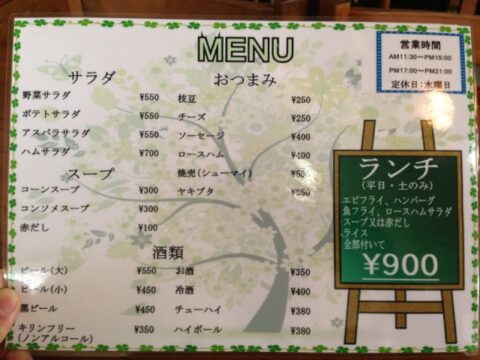 MENU
営業時間
AM11:30～PM15:00
PM17:00～PM21:00
定休日:水曜日
サラダ
野菜サラダ ¥550
ポテトサラダ ¥550
アスパラサラダ ¥550
ハムサラダ ¥700
スープ
コーンスープ ¥300
コンソメスープ ¥300
赤だし ¥100
おつまみ
枝豆 ¥250
チーズ ¥250
ソーセージ ¥400
ロースハム ¥400
焼売(シューマイ)
ヤキブタ
酒類
ビール(大) ¥550
ビール(小) ¥450
黒ビール ¥450
キリンフリー ¥350
(ノンアルコール)
お酒 ¥350
冷酒 ¥400
チューハイ ¥380
ハイボール ¥380
ランチ
(平日・土のみ)
エビフライ、ハンバーグ
魚フライ、ロースハムサラダ
スープ又は赤だし
ライス
全部付いて
¥900